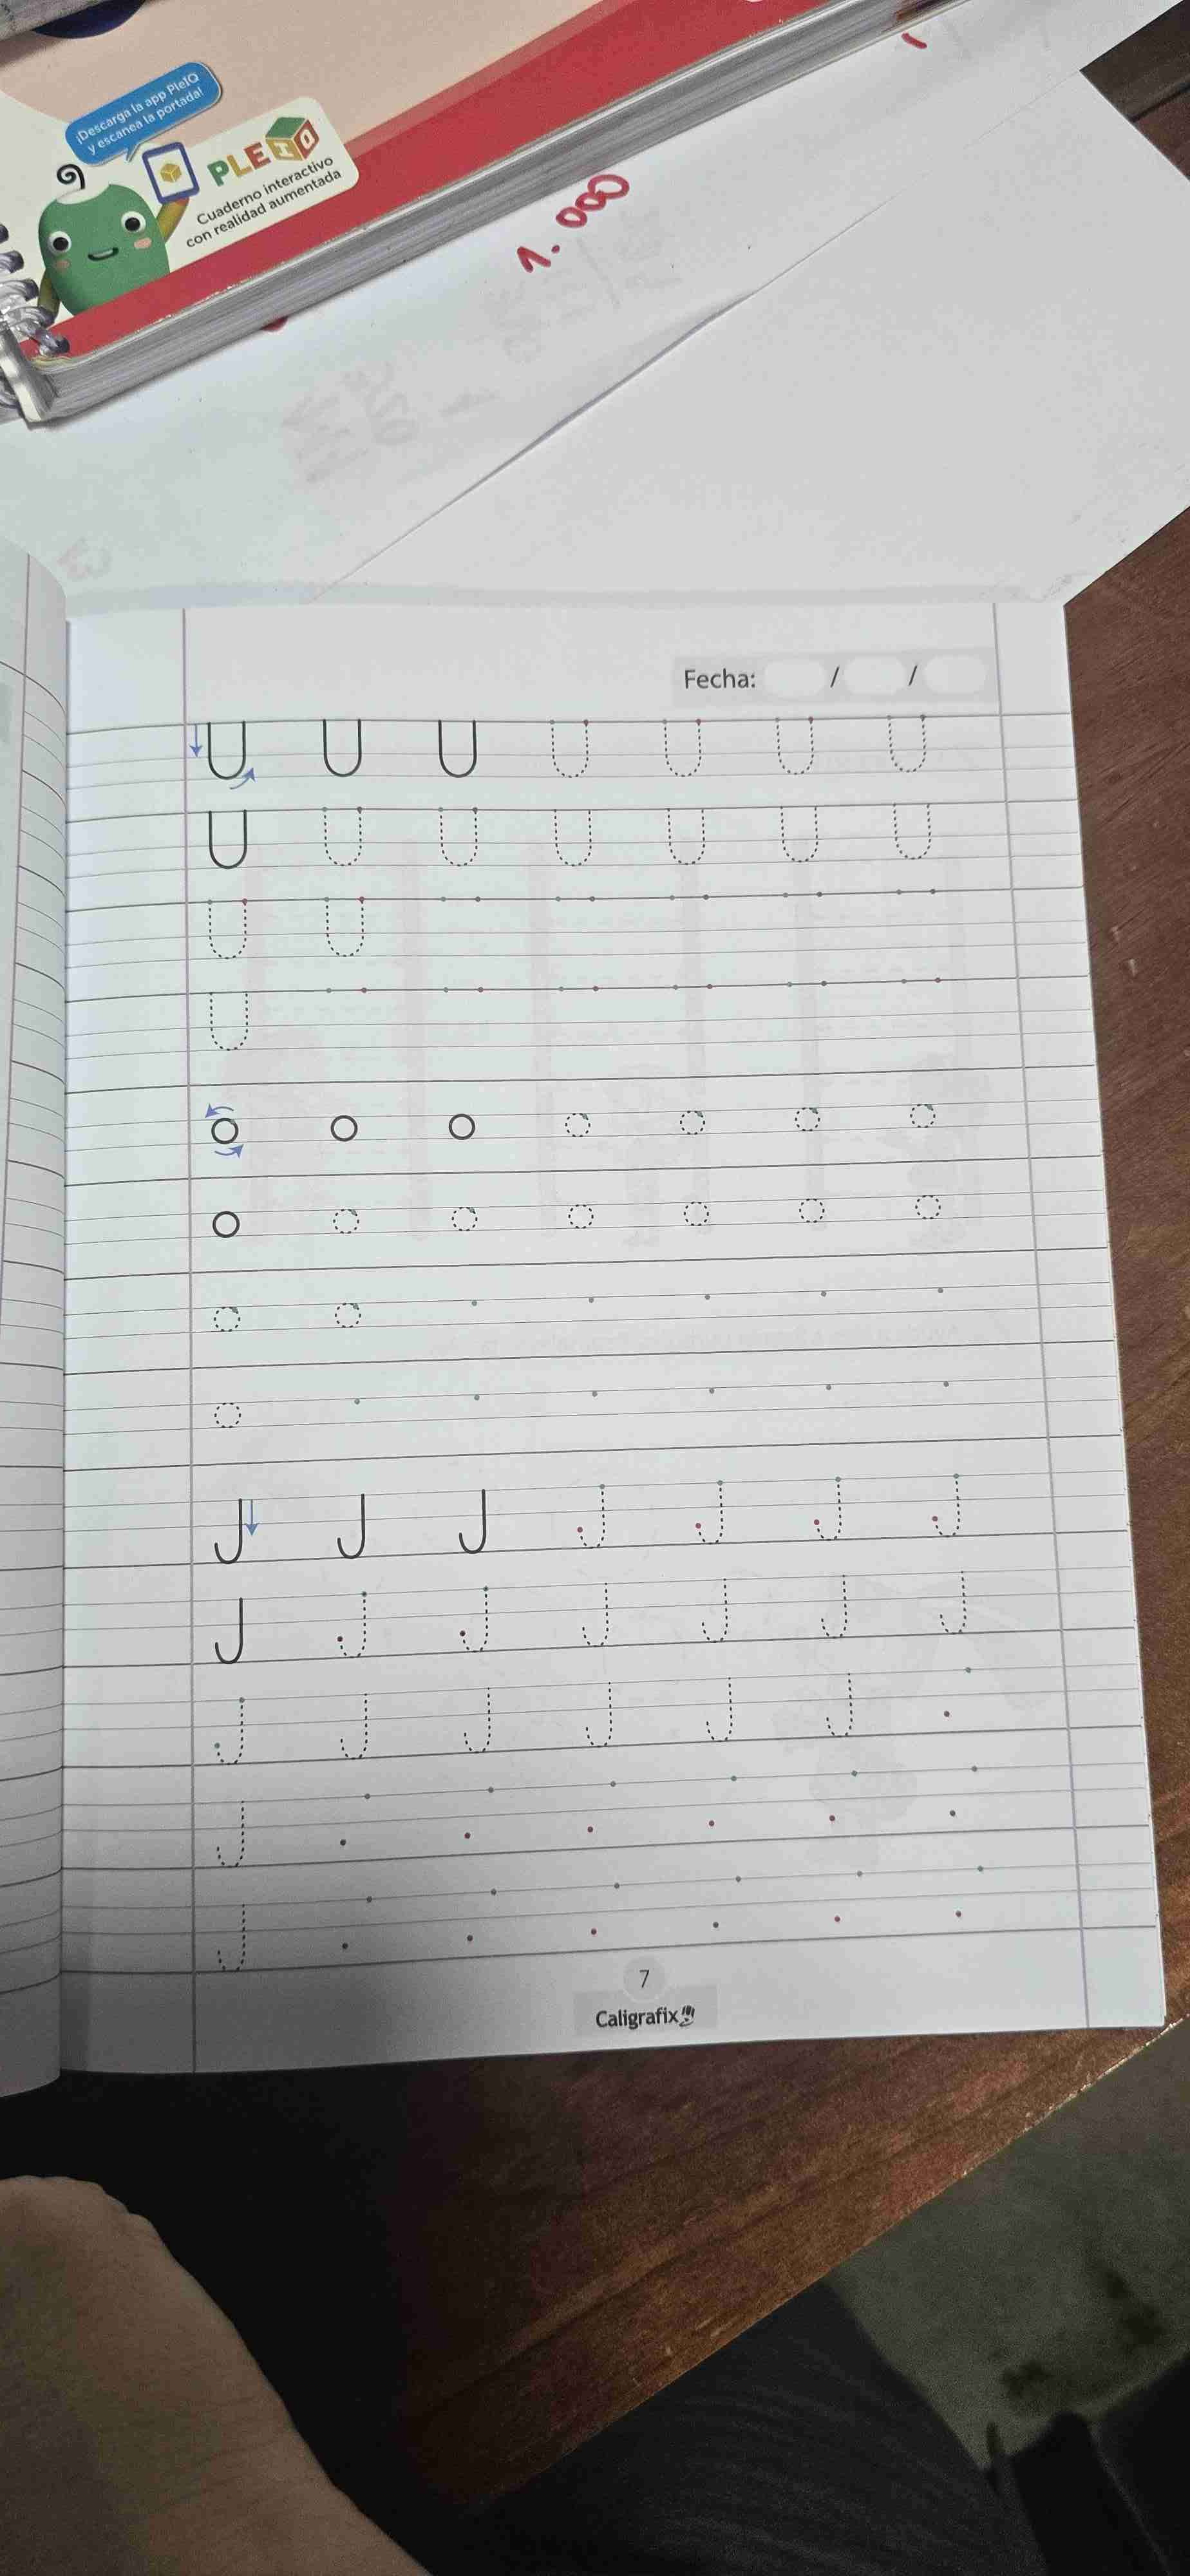 ¡Descarga la app PleIQ
y escanea la portada!
PLEIQ
Cuaderno interactivo
con realidad aumentada
1.000
Fecha: / /
U U U U U U U
U U U U U U U
U U
U
o o o o o o o
o o o o o o o
o o
o
J J J J J J J
J J J J J J J
J J J J J J
J
J
7
Caligrafix